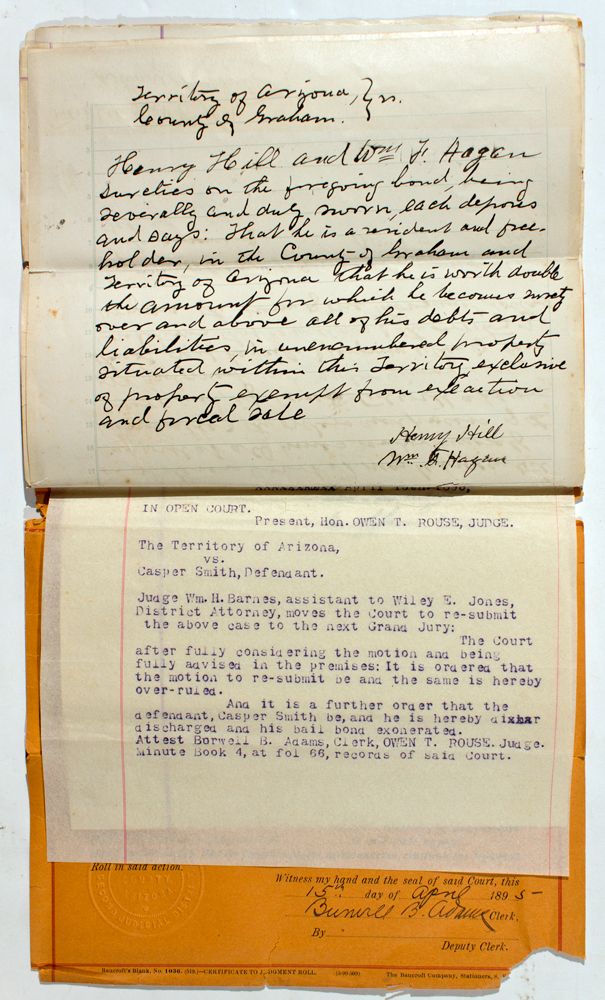 Territory of Arizona, } ss.
County of Graham. }
Henry Hill and Wm F. Hagan
sureties on the foregoing bond, being
severally and duly sworn, each deposes
and says: That he is a resident and free-
holder, in the County of Graham and
Territory of Arizona that he is worth double
the amount for which he becomes surety
over and above all of his debts and
liabilities, in unencumbered property
situated within this Territory exclusive
of property exempt from execution
and forced sale
Henry Hill
Wm F. Hagan
April
IN OPEN COURT.
Present, Hon. OWEN T. ROUSE, JUDGE.
The Territory of Arizona,
vs.
Casper Smith, Defendant.
Judge Wm. H. Barnes, assistant to Wiley E. Jones,
District Attorney, moves the Court to re-submit
the above case to the next Grand Jury:
The Court
after fully considering the motion and being
fully advised in the premises: It is ordered that
the motion to re-submit be and the same is hereby
over-ruled.
And it is a further order that the
defendant, Casper Smith be, and he is hereby dixhar
discharged and his bail bond exonerated.
Attest Burwell B. Adams, Clerk, OWEN T. ROUSE. Judge.
Minute Book 4, at fol 66, records of said Court.
Roll in said action.
Witness my hand and the seal of said Court, this
15th day of April 1895
Burwell B. Adams Clerk,
By
Deputy Clerk.
Bancroft's Blank, No. 1036. CERTIFICATE TO JUDGMENT ROLL. The Bancroft Company, Stationers, S.